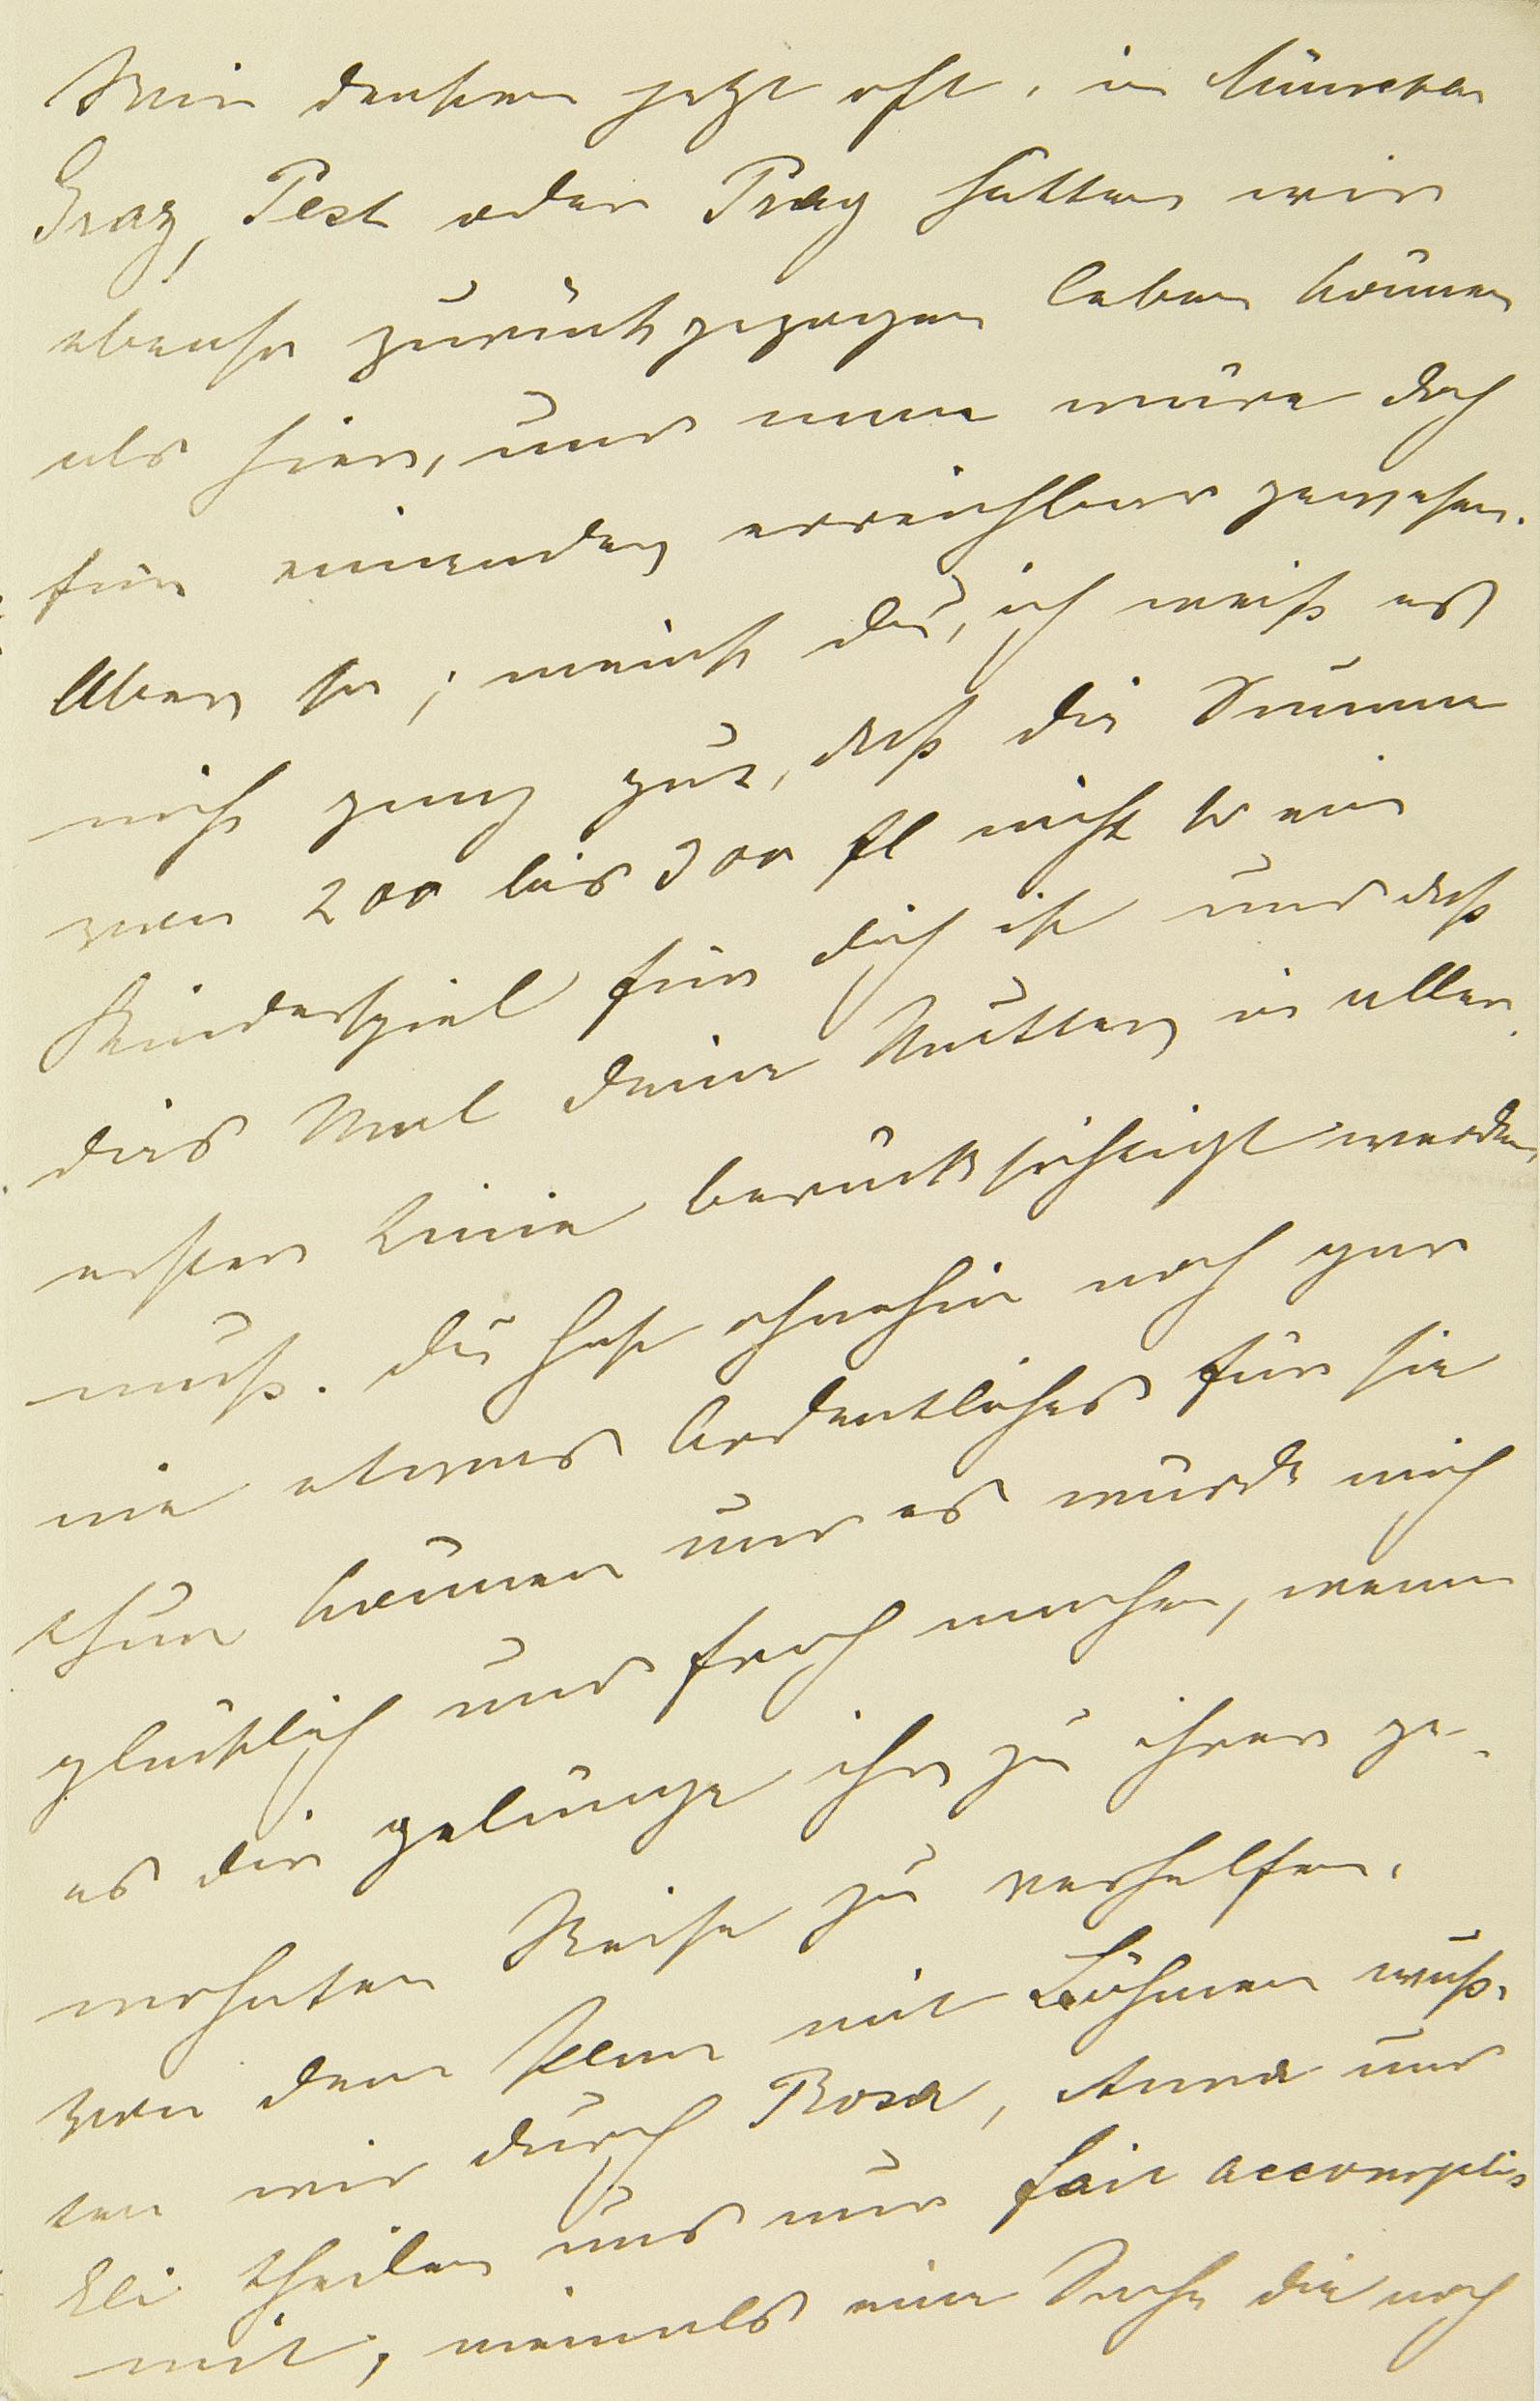 Wir denken jetzt oft, in München
Graz, Pest oder Prag hätten wir
ebenso zurückgezogen leben können
als hier, und man wäre doch
für einander erreichbar gewesen.
Aber so; merkst du, ich weiß es
nicht ganz gut, daß die Summe
von 200 bis 300 fl nicht ein
Kinderspiel für dich ist und daß
dies Mal deine Mutter in aller
erster Linie berücksichtigt werden
muß. du hast ohnehin noch gar
nie etwas Ordentliches für sie
thun können und es würde mich
glücklich und froh machen, wenn
es dir gelünge ihr zu ihrer ge-
wohnten Reise zu verhelfen.
von dem Plan mit Böhmen wuß-
ten wir durch Rosa, Anna und
Eli theilen uns nur fait accomplis
mit, niemals eine Sache die noch